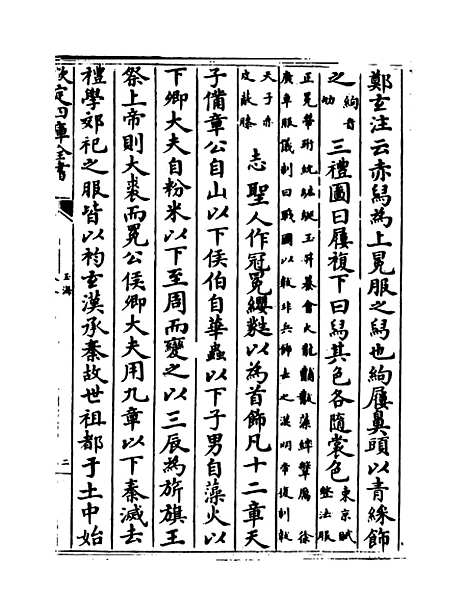 鄭玄注云赤舄為上冕服之舄也絇屨鼻頭以青綵飾
之絇音劬三禮圖曰屨複下曰舄其色各隨裳色東京賦整法服
正冕帶珩紞紘綖玉笄綦會火龍黼黻藻繂鞶厲徐
廣車服儀制曰戰國以韍非兵飾去之漢明帝復制韍
天子亦皮蔽膝志聖人作冠冕纓蕤以為首飾凡十二章天
子備章公自山以下侯伯自華蟲以下子男自藻火以
下卿大夫自粉米以下至周而變之以三辰為旂旗王
祭上帝則大裘而冕公侯卿大夫用九章以下秦滅去
禮學郊祀之服皆以袀玄漢承秦故世祖都于土中始
欽定四庫全書
玉海
二